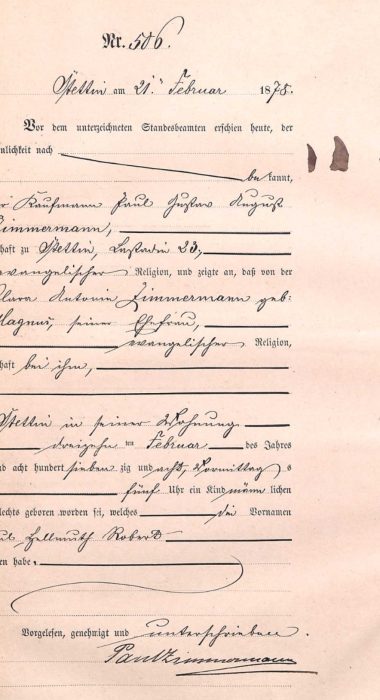 Nr. 506.
Stettin am 21ten Februar 1878.
Vor dem unterzeichneten Standesbeamten erschien heute, der
nlichkeit nach
be kannt,
r Kaufmann Paul Gustav August
Zimmermann,
haft zu Stettin, Lastadie 23,
evangelischer Religion, und zeigte an, daß von der
Clara Antonie Zimmermann geb:
Magnus, seiner Ehefrau,
evangelischer Religion,
haft bei ihm,
Stettin in seiner Wohnung
dreizehn ten Februar des Jahres
nd acht hundert sieben zig und acht, Vormittag s
fünf Uhr ein Kind männ lichen
lechts geboren worden sei, welches die Vornamen
ul Hellmuth Robert
en habe.
Vorgelesen, genehmigt und unterschrieben.
Paul Zimmermann